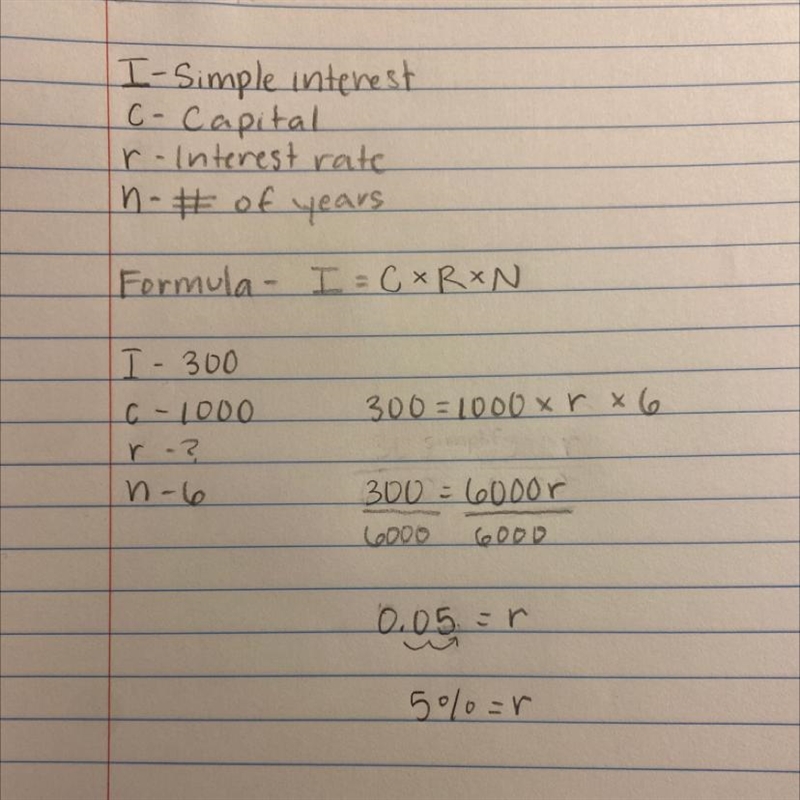 I - Simple interest
C - Capital
r - Interest rate
n - # of years
Formula - I = C × R × N
I - 300
C - 1000
300 = 1000 × r × 6
r - ?
n - 6
300 = 6000r
6000 6000
0.05 = r
5% = r